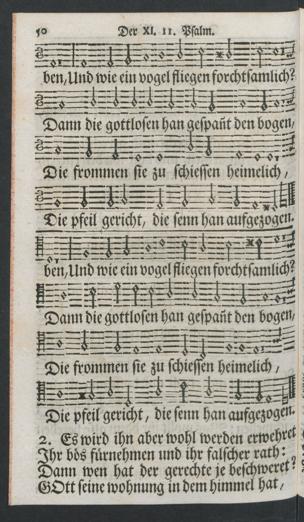 50 Der XI. II. Psalm.
ben, Und wie ein vogel fliegen forchtsamlich?
Dann die gottlosen han gespañt den bogen,
Die frommen sie zu schiessen heimelich,
Die pfeil gericht, die senn han aufgezogen.
ben, Und wie ein vogel fliegen forchtsamlich?
Dann die gottlosen han gespañt den bogen,
Die frommen sie zu schiessen heimelich,
Die pfeil gericht, die senn han aufgezogen.
2. Es wird ihn aber wohl werden erwehret
Ihr bös fürnehmen und ihr falscher rath:
Dann wen hat der gerechte je beschweret?
GOtt seine wohnung in dem himmel hat,